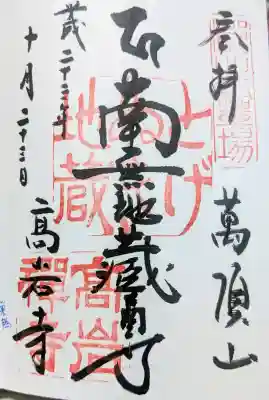 奉拝 萬頂山
南無地蔵尊
高岩寺
歳二十三年
十月二十三日
とげぬき地蔵
高岩禅寺
霊場